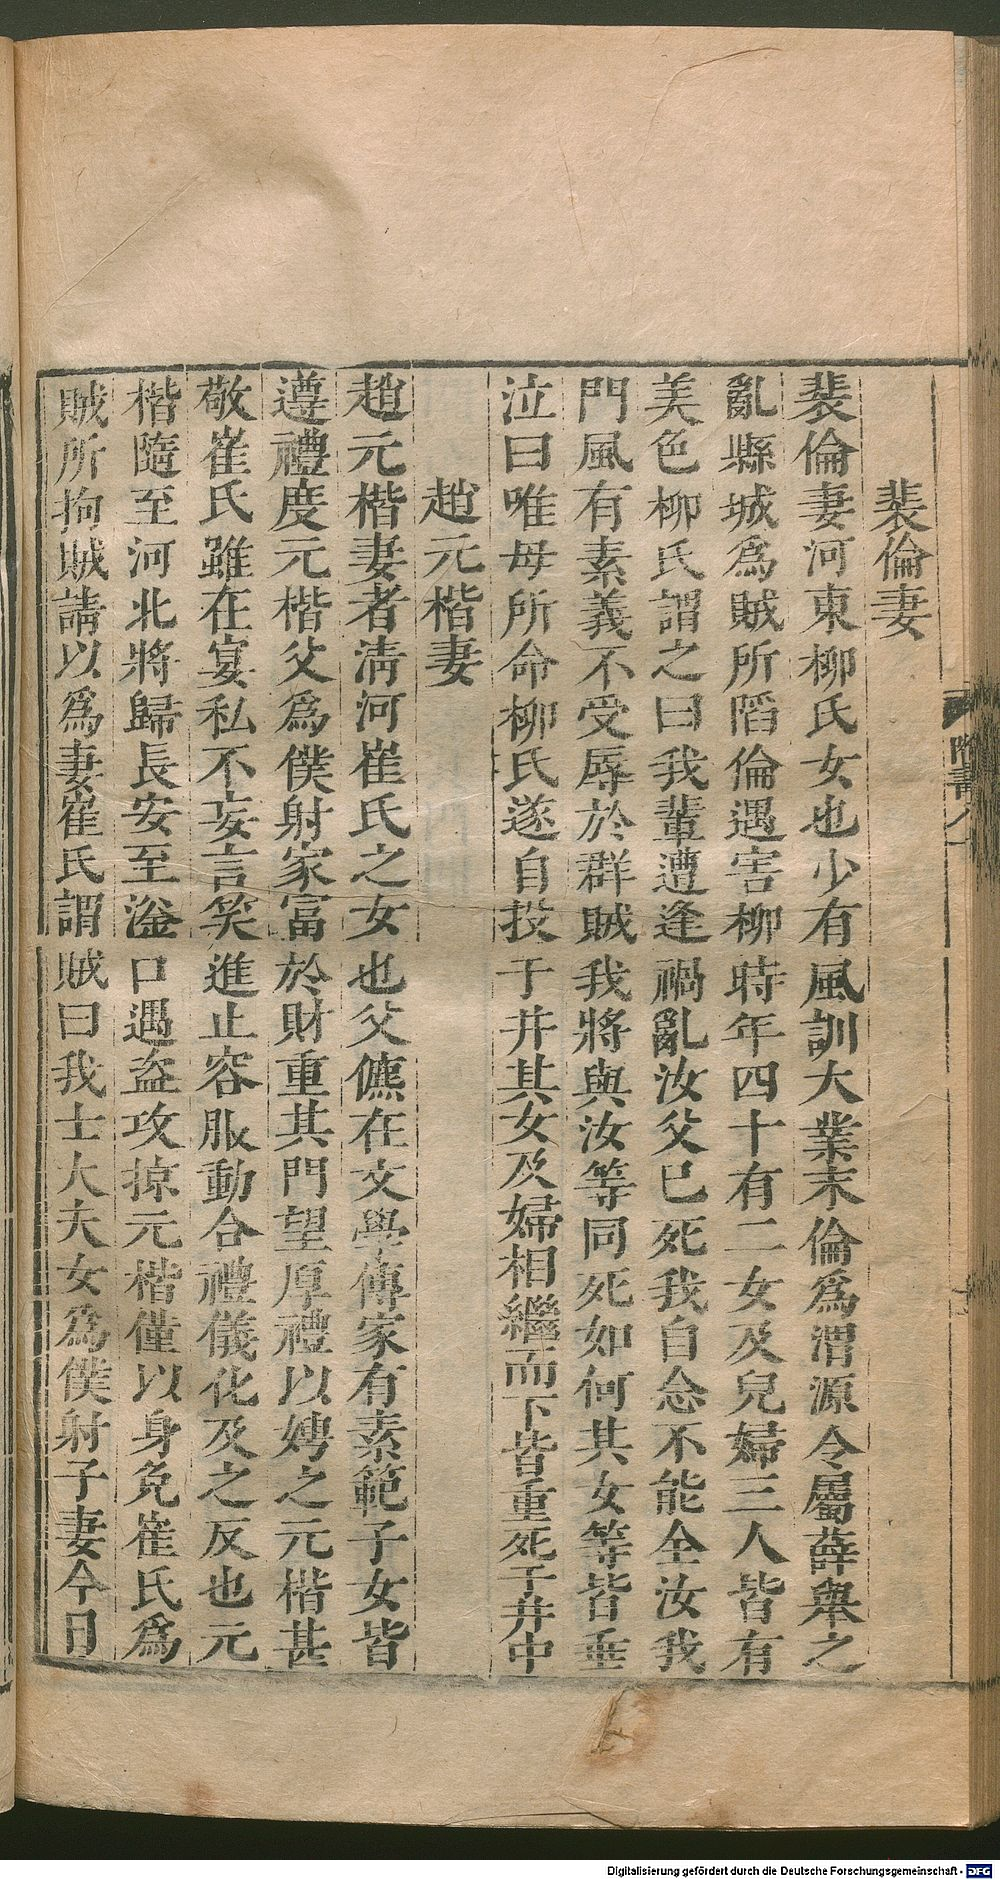 裴倫妻
裴倫妻河東柳氏女也少有風訓大業末倫爲渭源令屬薛舉之
亂縣城爲賊所䧟倫遇害柳時年四十有二女及兒婦三人皆有
美色柳氏謂之曰我輩遭逢禍亂汝父已死我自念不能全汝我
門風有素義不受辱於群賊我將與汝等同死如何其女等皆垂
泣曰唯母所命柳氏遂自投于井其女及婦相繼而下皆重死于井中
趙元楷妻
趙元楷妻者淸河崔氏之女也父儦在文學傳家有素範子女皆
遵禮度元楷父爲僕射家富於財重其門望厚禮以娉之元楷甚
敬崔氏雖在宴私不妄言笑進止容服動合禮儀化及之反也元
楷隨至河北將歸長安至滏口遇盜攻掠元楷僅以身免崔氏爲
賊所拘賊請以爲妻崔氏謂賊曰我士大夫女爲僕射子妻今日
隋書八
Digitalisierung gefördert durch die Deutsche Forschungsgemeinschaft - DFG